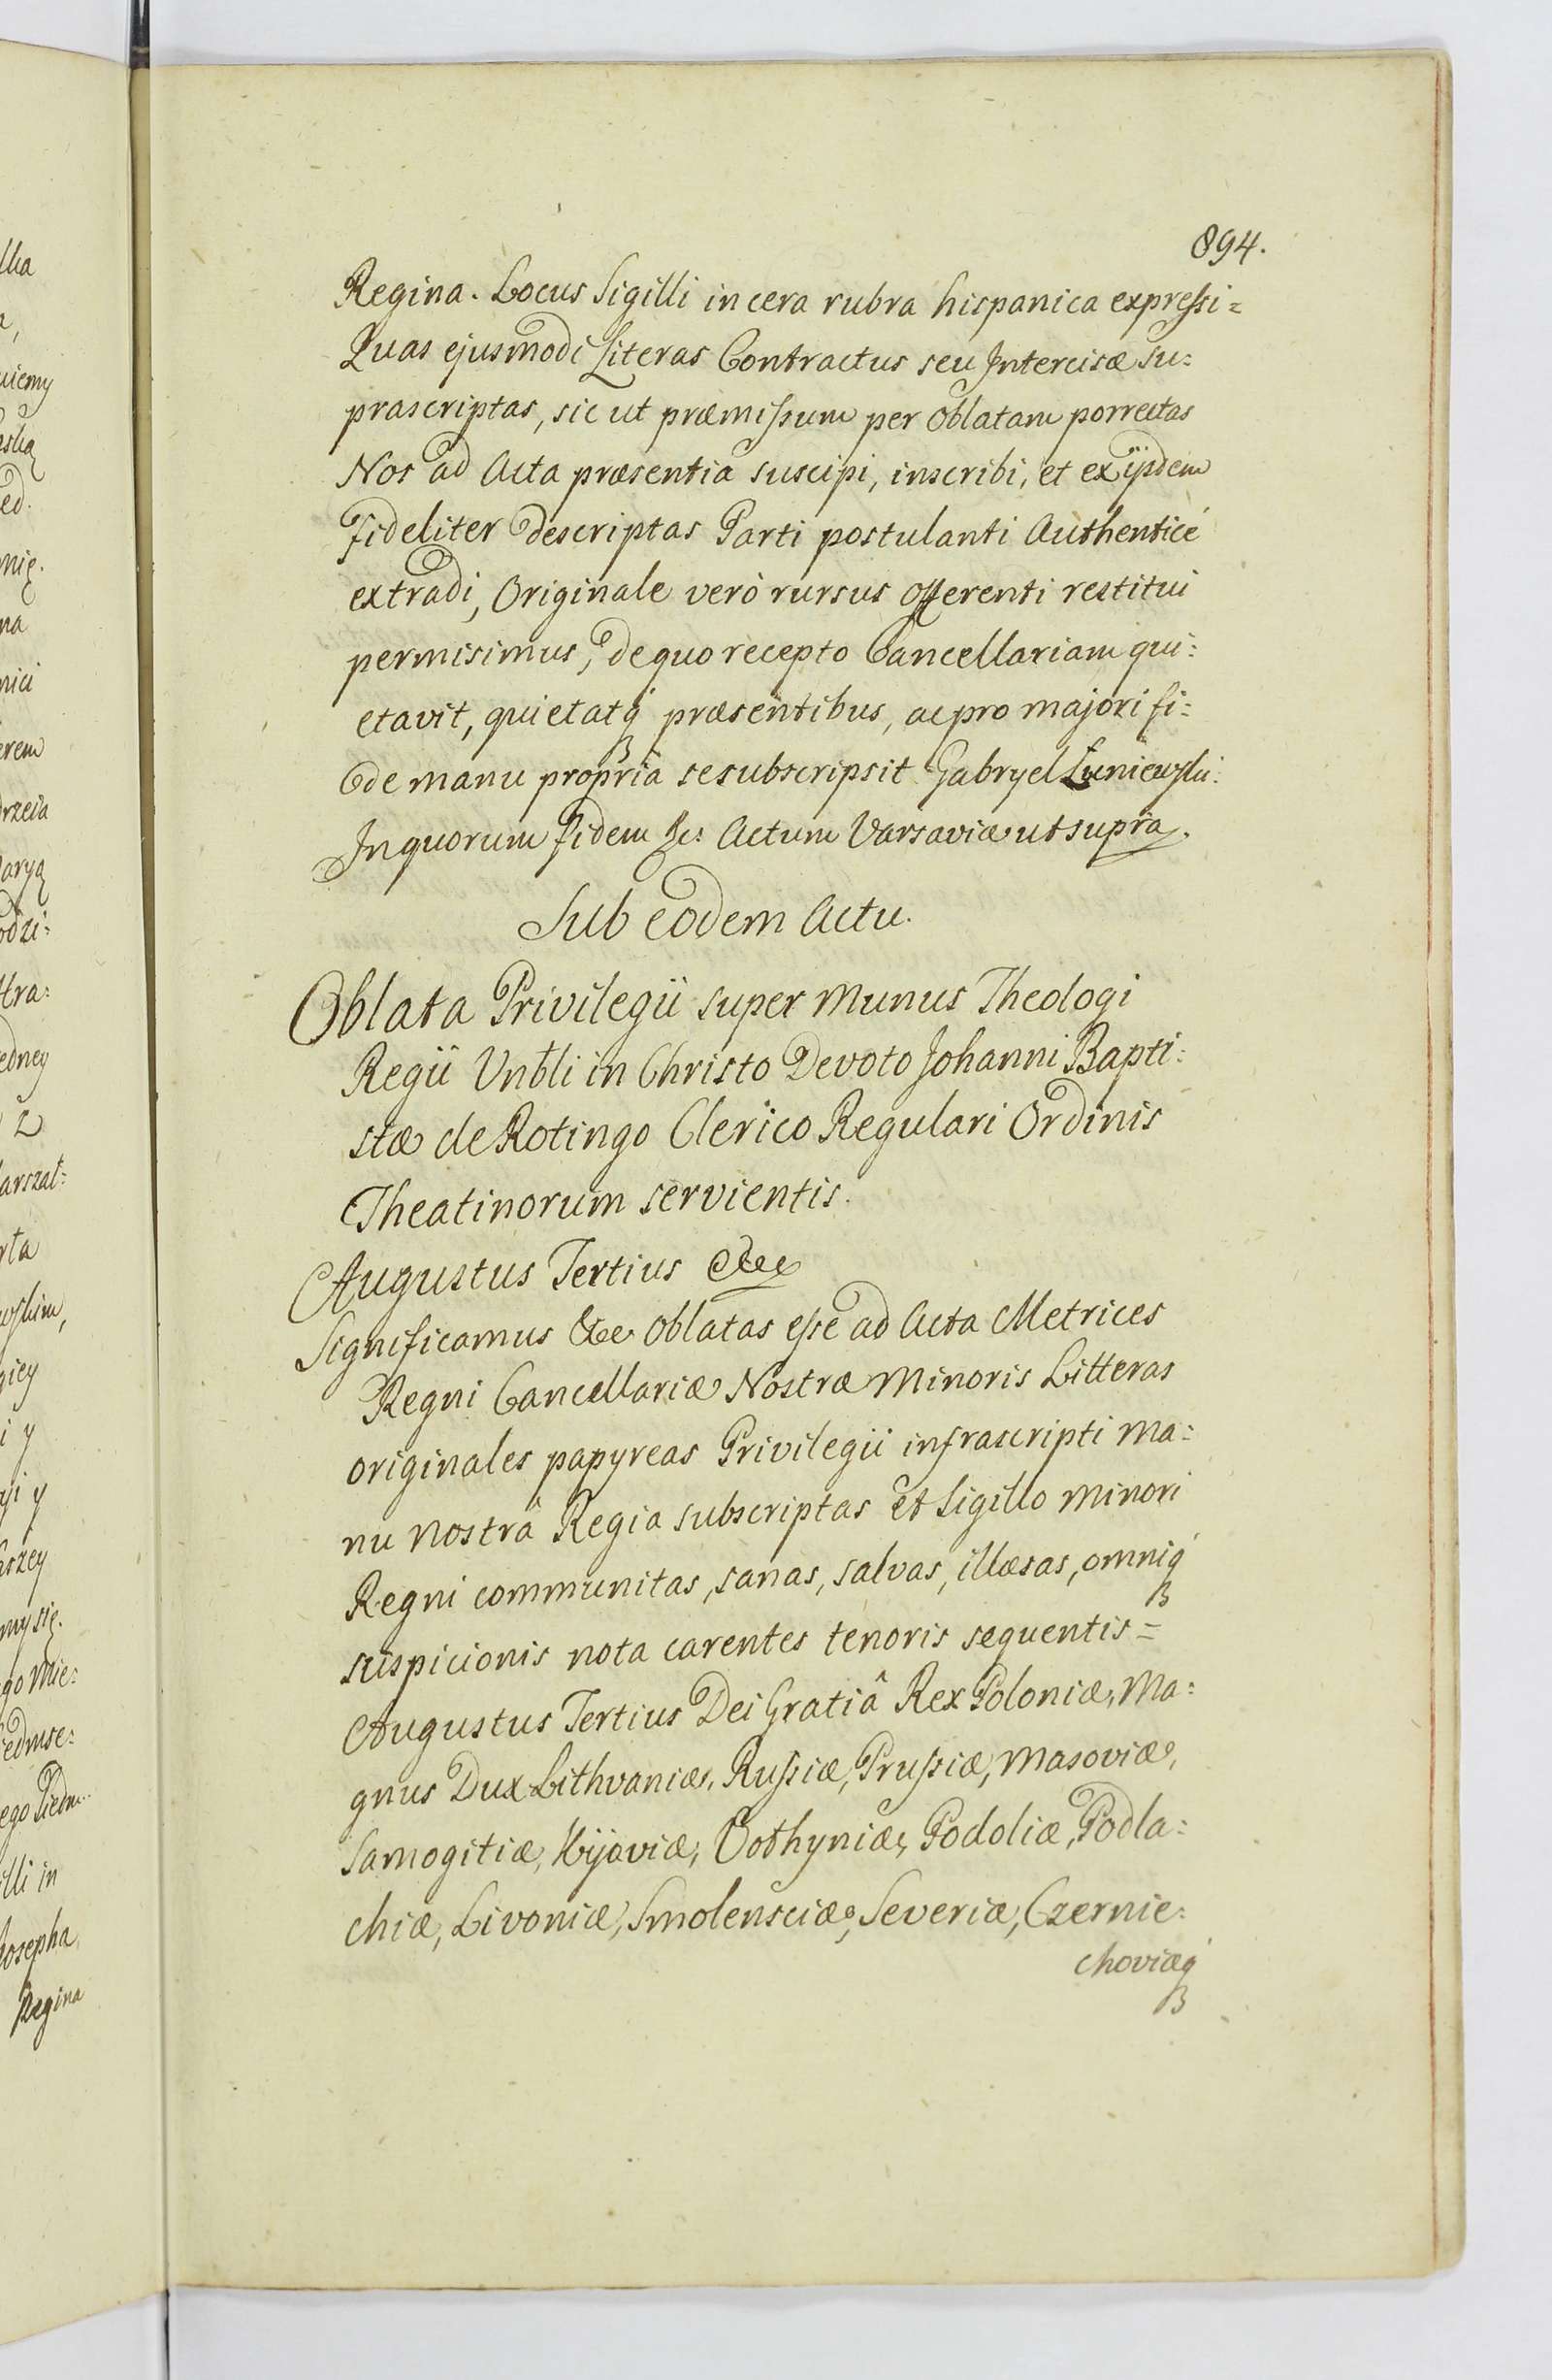 894.
Regina. Locus Sigilli in cera rubra hispanica expressi=
Quas ejusmodi Literas Contractus seu Intercisæ su:
prascriptas, sic ut præmissum per Oblatam porrectas
Nos ad Acta præsentia suscipi, inscribi, et ex ijsdem
fideliter descriptas Parti postulanti Authenticè
extradi, Originale verò rursus Offerenti restitui
permisimus, de quo recepto Cancellariam qui:
etavit, quietatq́ præsentibus, ac pro majori fi:
de manu propria se subscripsit Gabryel Łuniewski.
In quorum fidem &c: Actum Varsaviæ ut supra.
Sub eodem Actu.
Oblata Privilegii super Munus Theologi
Regii Vnbli in Christo Devoto Johanni Bapti:
stæ de Rotingo Clerico Regulari Ordinis
Theatinorum servientis.
Augustus Tertius &c
Significamus &c Oblatas esse ad Acta Metrices
Regni Cancellariæ Nostræ Minoris Litteras
originales papyreas Privilegii infrascripti Ma:
nu Nostrâ Regia subscriptas et Sigillo Minori
Regni communitas, sanas, salvas, illæsas, omniq́
suspicionis nota carentes tenoris sequentis=
Augustus Tertius Dei Gratiâ Rex Poloniæ, Ma:
gnus Dux Lithvaniæ, Russiæ, Prussiæ, Masoviæ,
Samogitiæ, Kijoviæ, Vothyniæ, Podoliæ, Podla:
chiæ, Livoniæ, Smolensciæ, Severiæ, Czernie:
choviæq́